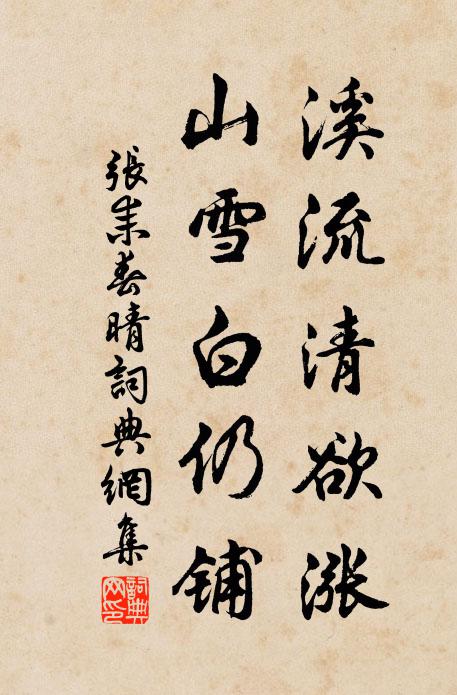 溪流清欲涨
山雪白仍铺
張耒春晴詞典網集
詞典網印